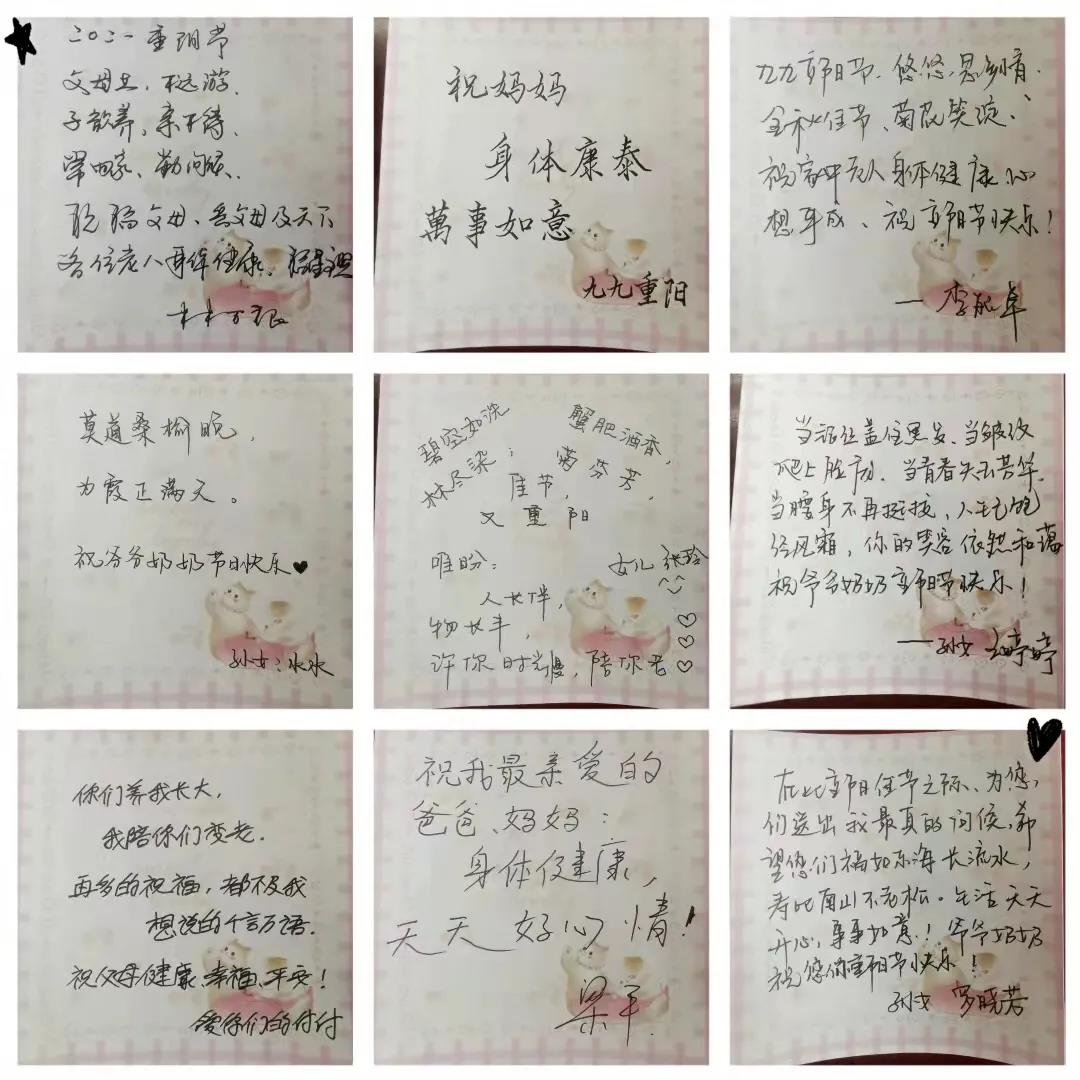 二〇二一重阳节
父母在，不远游.
子欲养，亲不待.
常回家、勤问候.
祝福父母、愿父母及天下
各位老人身体健康.
祝妈妈
身体康泰
萬事如意
九九重阳
九九重阳节、悠悠思乡情.
金秋佳节、菊花笑绽、
祝家中老人身体健康心
想事成、祝重阳节快乐！
莫道桑榆晚，
为霞正满天。
祝爷爷奶奶节日快乐
孙女：水水
碧空如洗
林尽染；
蟹肥酒香，
菊芬芳，
佳节，
又重阳
唯盼：
人长伴，
物长丰，
许你时光慢，陪你老
女儿 张玲
当银丝盖住黑发、当皱纹
爬上脸庞、当青春失去芳华.
当腰身不再挺拔，人生已饱
经风霜，你的笑容依然和蔼
祝爷爷奶奶重阳节快乐！
一孙女 婷婷
你们养我长大，
我陪你们变老.
再多的祝福，都不及我
想说的千言万语.
祝父母健康、幸福、平安！
爱你们的付付
祝我最亲爱的
爸爸、妈妈：
身体健康，
天天好心情！
梁平.
在此重阳佳节之际、为您
们送出我最真的问候，希
望您们福如东海长流水，
寿比南山不老松。生活天天
开心，事事如意！爷爷奶奶
祝您们重阳节快乐！
孙女 罗晓芳